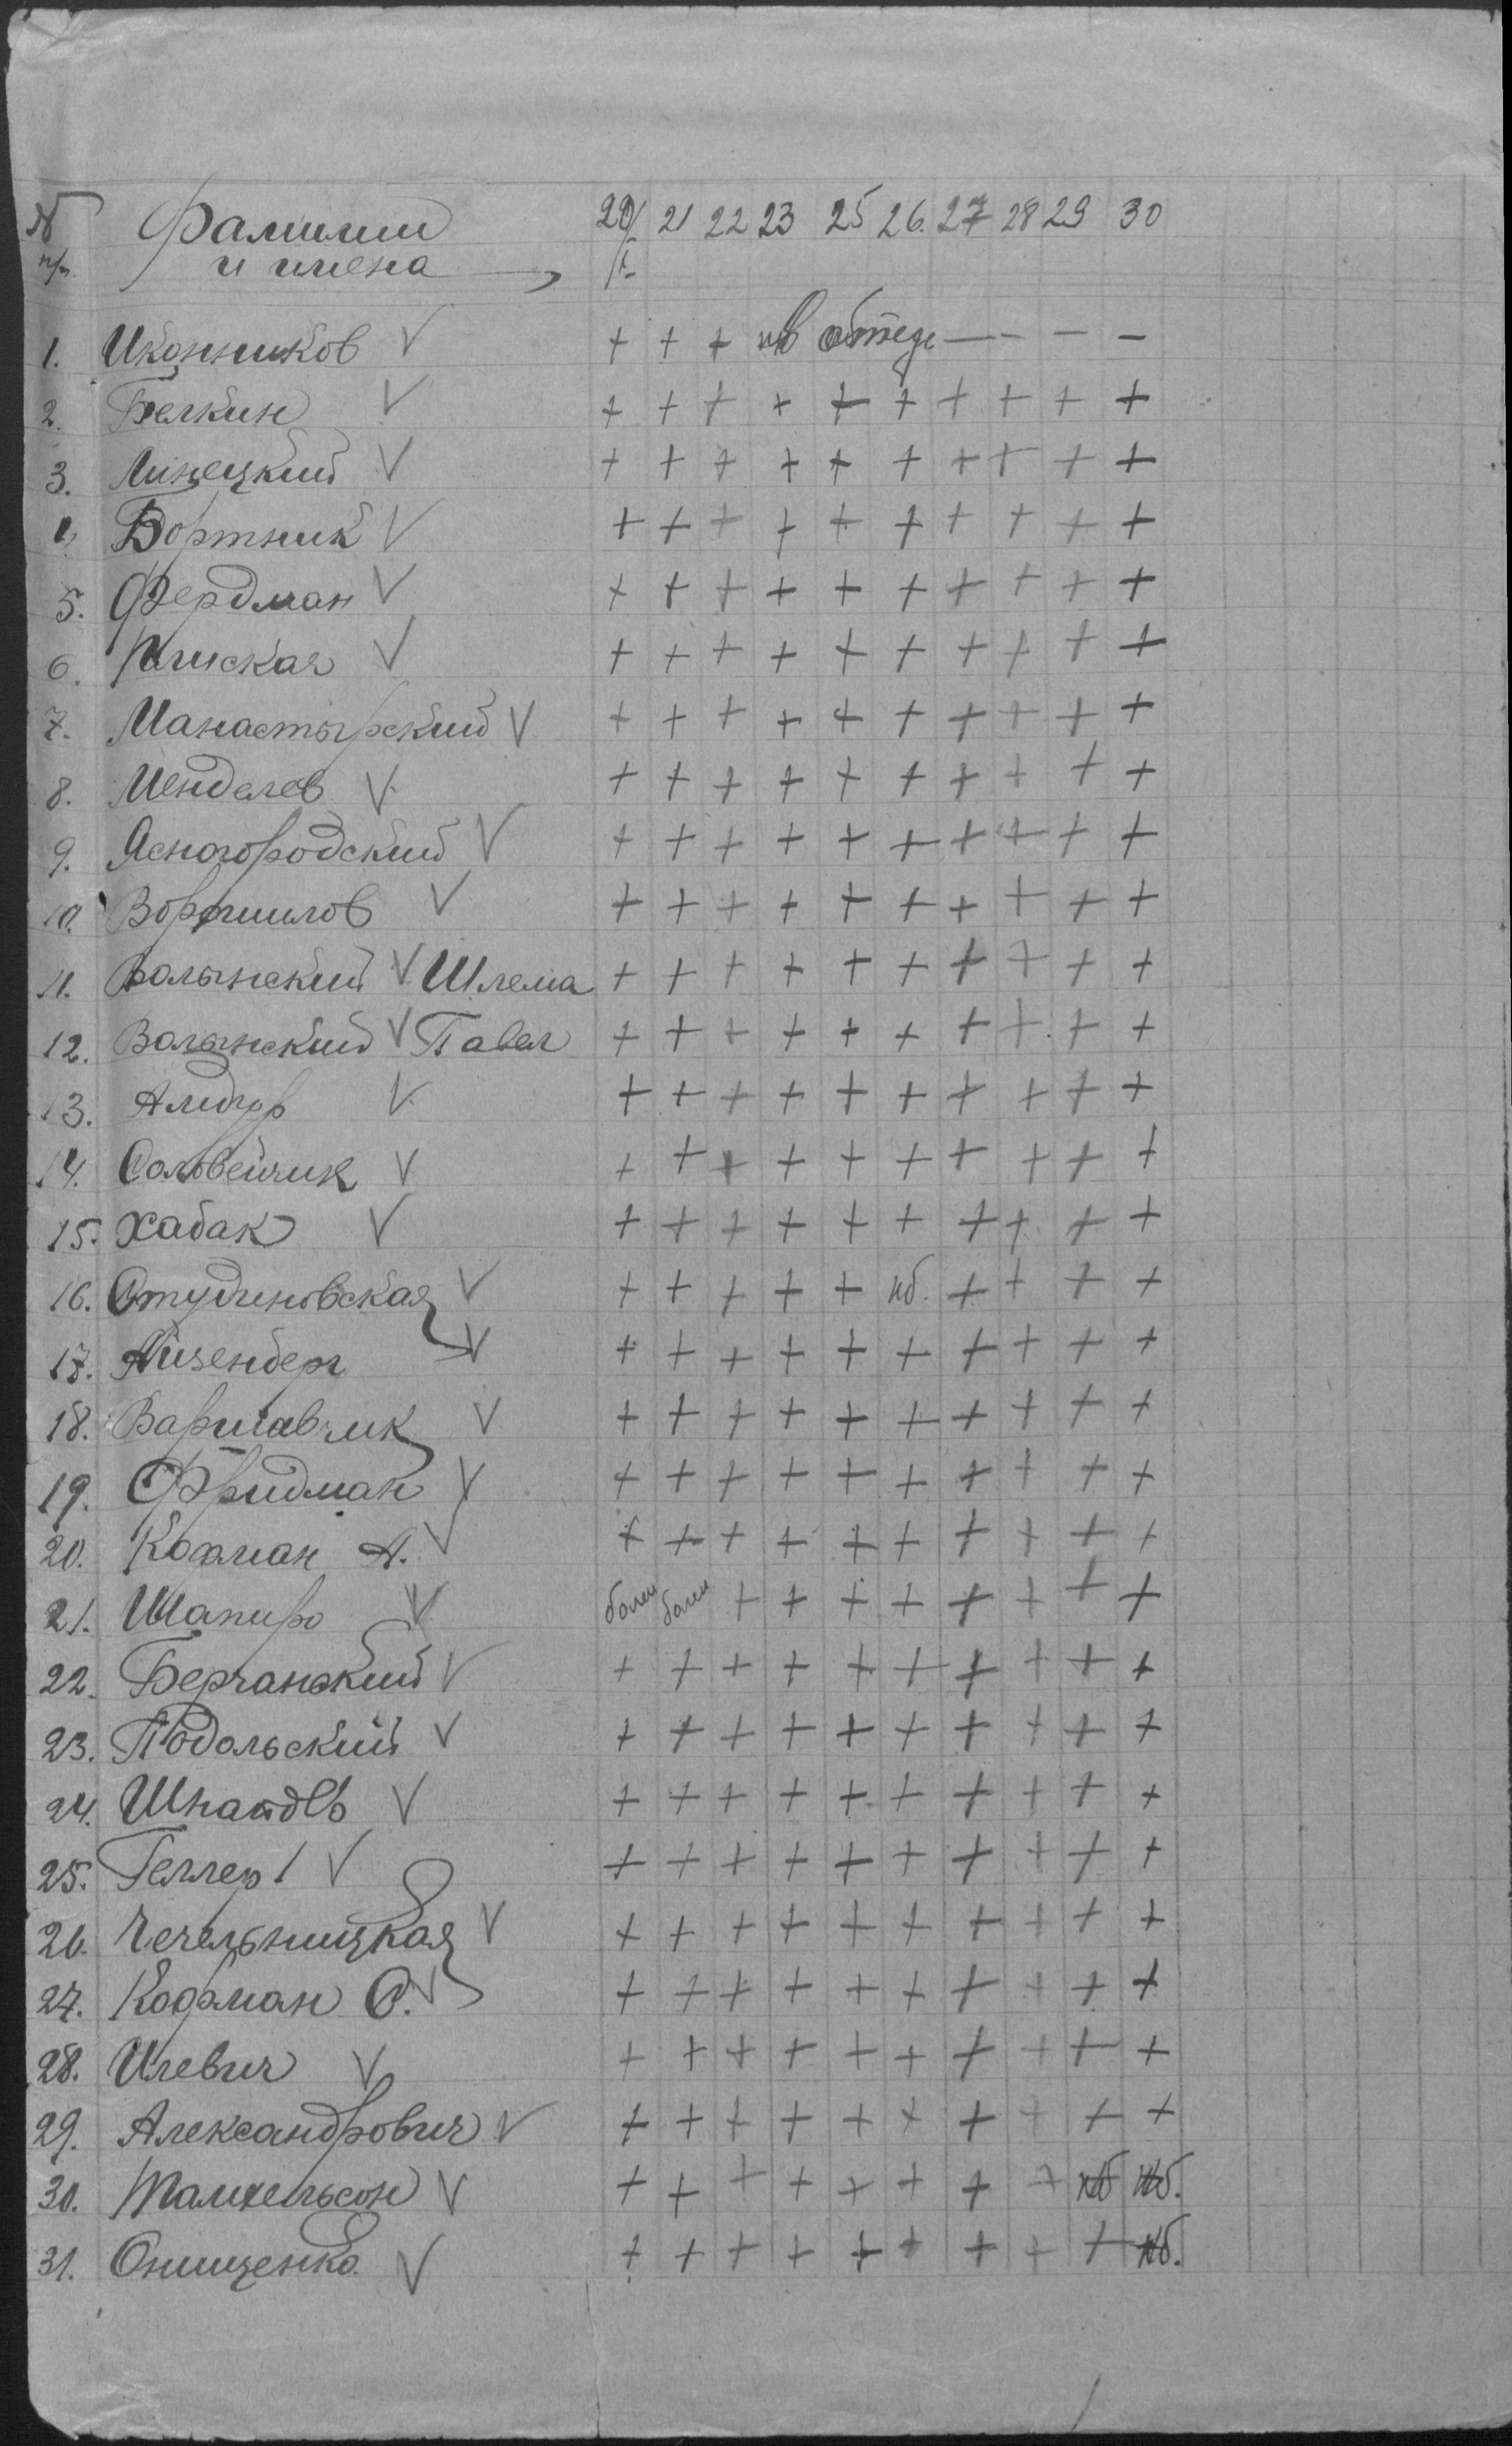 № Фамилии 20/ 21 22 23 25 26. 27 28 29 30
п/п. и имена I-
1. Иконников V + + + нб — — — —
2. Белкин V + + + + + + + + + +
3. Линецкий V + + + + + + + + + +
4. Бортник V + + + + + + + + + +
5. Фердман V + + + + + + + + + +
6. V + + + + + + + + + +
7. Манастырский V + + + + + + + + + +
8. Менделев V + + + + + + + + + +
9. Ясногородский V + + + + + + + + + +
10. Ворошилов V + + + + + + + + + +
11. Волынский V Шлема + + + + + + + + + +
12. Волынский V Павел + + + + + + + + + +
13. V + + + + + + + + + +
14. Соловейчик V + + + + + + + + + +
15. Хабак V + + + + + + + + + +
16. Студиновская V + + + + + нб. + + + +
17. Айзенберг V + + + + + + + + + +
18. Варшавчик V + + + + + + + + + +
19. Фридман V + + + + + + + + + +
20. Кофман А. V + + + + + + + + + +
21. Шапиро V болен болен + + + + + + + +
22. Берчанский V + + + + + + + + + +
23. Подольский V + + + + + + + + + +
24. V + + + + + + + + + +
25. Геллер 1 V + + + + + + + + + +
26. Чечельницкая V + + + + + + + + + +
27. Кофман С. V + + + + + + + + + +
28. Илевич V + + + + + + + + + +
29. Александрович V + + + + + + + + + +
30. V + + + + + + + + нб нб.
31. Онищенко V + + + + + + + + + нб.